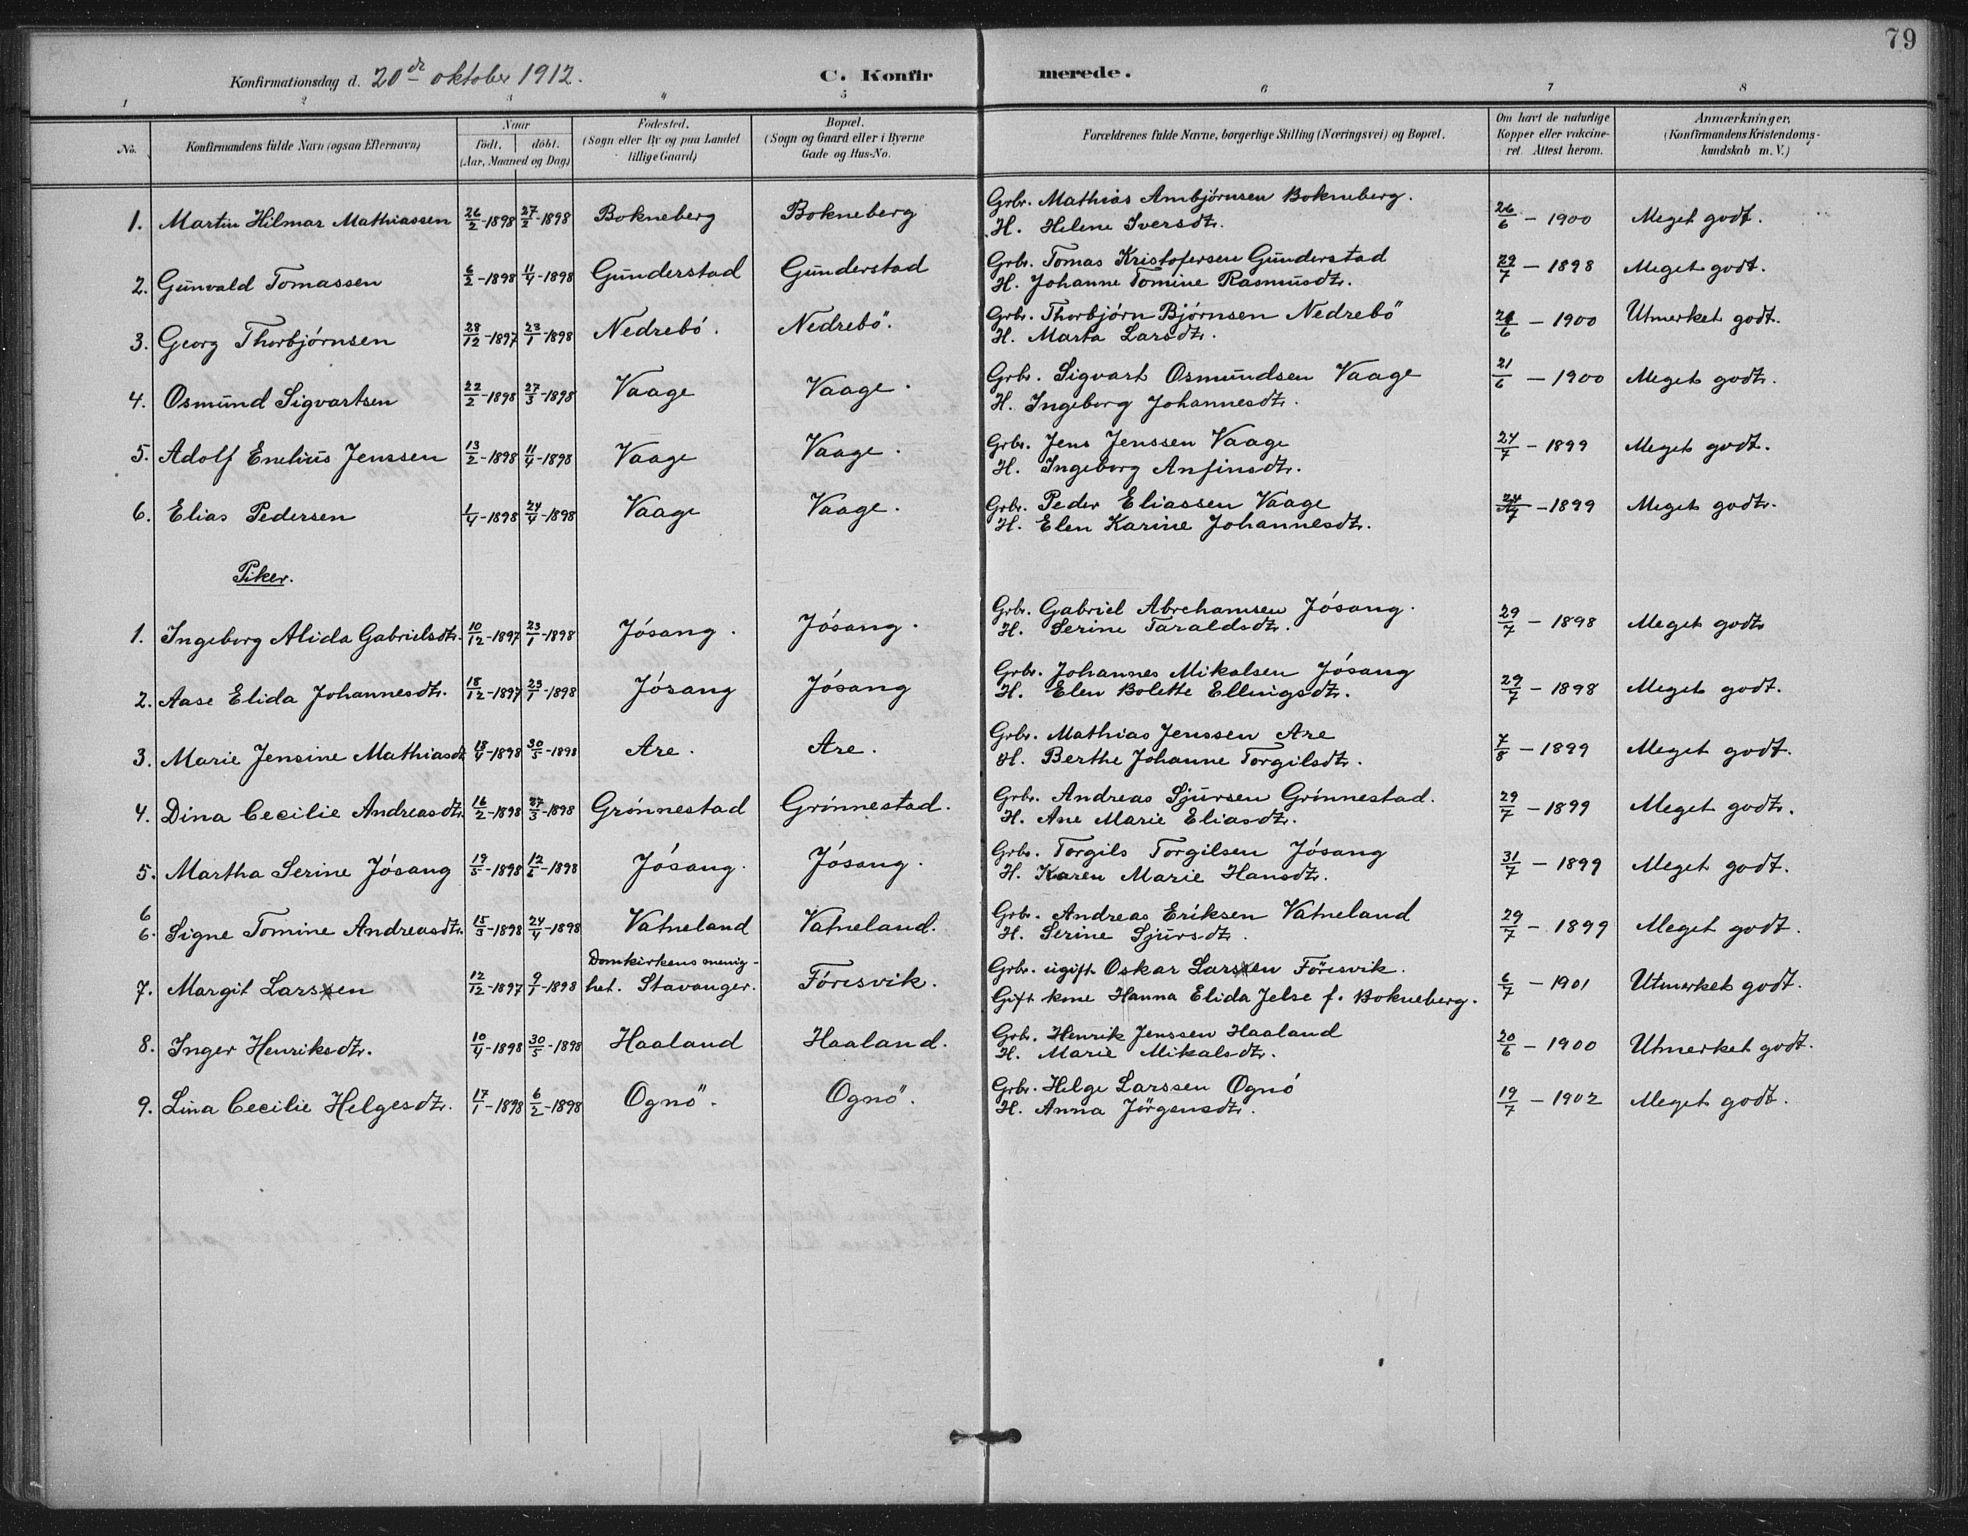 79
Konfirmationsdag d. 20de oktober 1912. C. Konfirmerede.
1 2 3 4 5 6 7 8
No. Konfirmandens fulde Navn (ogsaa Efternavn) Naar født. døbt. (Aar, Maaned og Dag) Fødested. (Sogn eller By og paa Landet tillige Gaard) Bopæl. (Sogn og Gaard eller i Byerne Gade og Hus-No. Forældrenes fulde Navne, borgerlige Stilling (Næringsvei) og Bopæl. Om havt de naturlige Kopper eller vakcineret. Attest herom. Anmærkninger. (Konfirmandens Kristendomskundskab m. V.)
1. Martin Hilmar Mathiassen 26/2-1898 27/2-1898 Bokneberg Bokneberg Grbr. Mathias Ambjørnsen Bokneberg. 26/6 - 1900 Meget godt.
H. Helene Iversdtr.
2. Gunvald Tomassen 6/2-1898 11/4-1898 Gunderstad Gunderstad Grbr. Tomas Kristofersen Gunderstad 29/7 - 1898 Meget godt.
H. Johanne Tomine Rasmusdtr.
3. Georg Thorbjørnsen 28/12-1897 23/1-1898 Nedrebó. Nedrebö. Grbr. Thorbjørn Bjørnsen Nedrebö 21/6 - 1900 Utmerket godt.
H. Marta Larsdtr.
4. Osmund Sigvartsen 22/2-1898 27/3-1898 Vaage Vaage. Grbr. Sigvart Osmundsen Vaage 21/6 - 1900 Meget godt.
H. Ingeborg Johannesdtr.
5. Adolf Enelius Jenssen 13/2-1898 11/4-1898 Vaage Vaage. Grbr. Jens Jenssen Vaage 24/7 - 1899 Meget godt.
H. Ingeborg Anfinsdtr.
6. Elias Pedersen 1/4-1898 24/4-1898 Vaage Vaage. Grbr. Peder Eliassen Vaage 24/7 - 1899 Meget godt.
H. Elen Karine Johannesdtr.
Piker.
1. Ingeborg Alida Gabrielsdtr. 10/12-1897 23/1-1898 Jósang. Jósang. Grbr. Gabriel Abrehamsen Jósang. 29/7 - 1898 Meget godt
H. Serine Taraldsdtr.
2. Aase Elida Johannesdtr. 18/12-1897 23/1-1898 Jósang Jósang Grbr. Johannes Mikalsen Jósang 29/7 - 1898 Meget godt.
H. Elen Bolette Ellingsdtr.
3. Marie Jensine Mathiasdtr 18/4-1898 30/5-1898 Are. Are. Grbr. Mathias Jenssen Are 7/8 - 1899 Meget godt.
H. Berthe Johanne Torgilsdtr.
4. Dina Cecilie Andreasdtr. 16/2-1898 27/3-1898 Grónnestad Grónnestad. Grbr. Andreas Sjursen Grónnestad. 29/7 - 1899 Meget godt.
H. Ane Marie Eliasdtr.
5. Martha Serine Jósang 19/5-1898 12/6-1898 Jósang. Jósang. Grbr. Torgils Torgilsen Jósang 31/7 - 1899 Meget godt.
H. Karen Marie Hansdtr.
6
6. Signe Tomine Andreasdtr. 15/3-1898 24/4-1898 Vatneland Vatneland. Grbr. Andreas Eriksen Vatneland 29/7 - 1899 Meget godt.
H. Serine Sjursdtr.
7. Margit Larssen 12/12-1897 9/1-1898 Domkirkens menighet. Stavanger. Fóresvik. Grbr. ugift Oskar Larssen Föresvik. 6/7 - 1901 Utmerket godt.
Gift kone Hanna Elida Jelse f. Bokneberg.
8. Inger Henriksdtr. 10/4-1898 30/5-1898 Haaland Haaland. Grbr. Henrik Jenssen Haaland 20/6 - 1900 Utmerket godt.
H. Marie Mikalsdtr.
9. Lina Cecilie Helgesdtr. 17/1-1898 6/2-1898 Ognö. Ognö. Grbr. Helge Larssen Ognó 19/7 - 1902 Meget godt.
H. Anna Jörgensdtr.